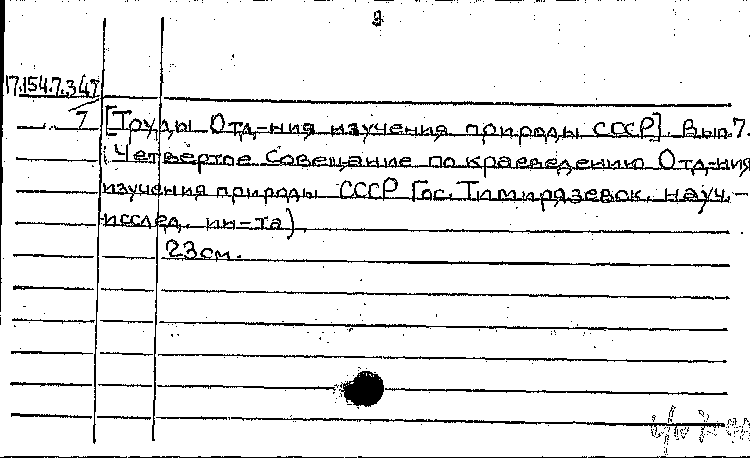 2
17.154.7.347
7 [Труды Отд-ния изучения природы СССР]. Вып. 7.
(Четвертое совещание по краеведению Отд-ния
изучения природы СССР Гос. Тимирязевск. науч.-
исслед. ин-та).
23 см.